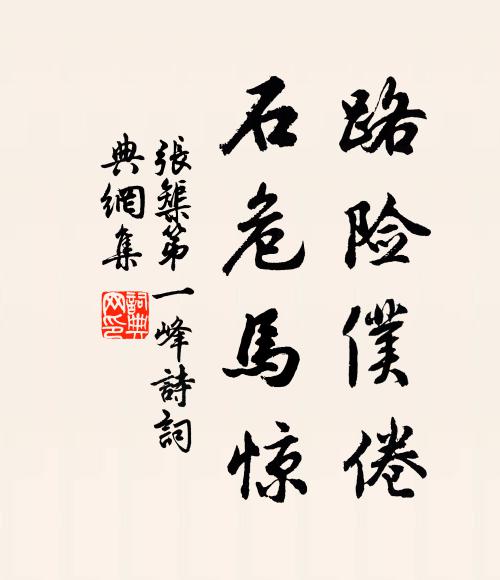 路险僕倦
石危馬惊
張榘第一峰詩詞
典網集
詞典网印